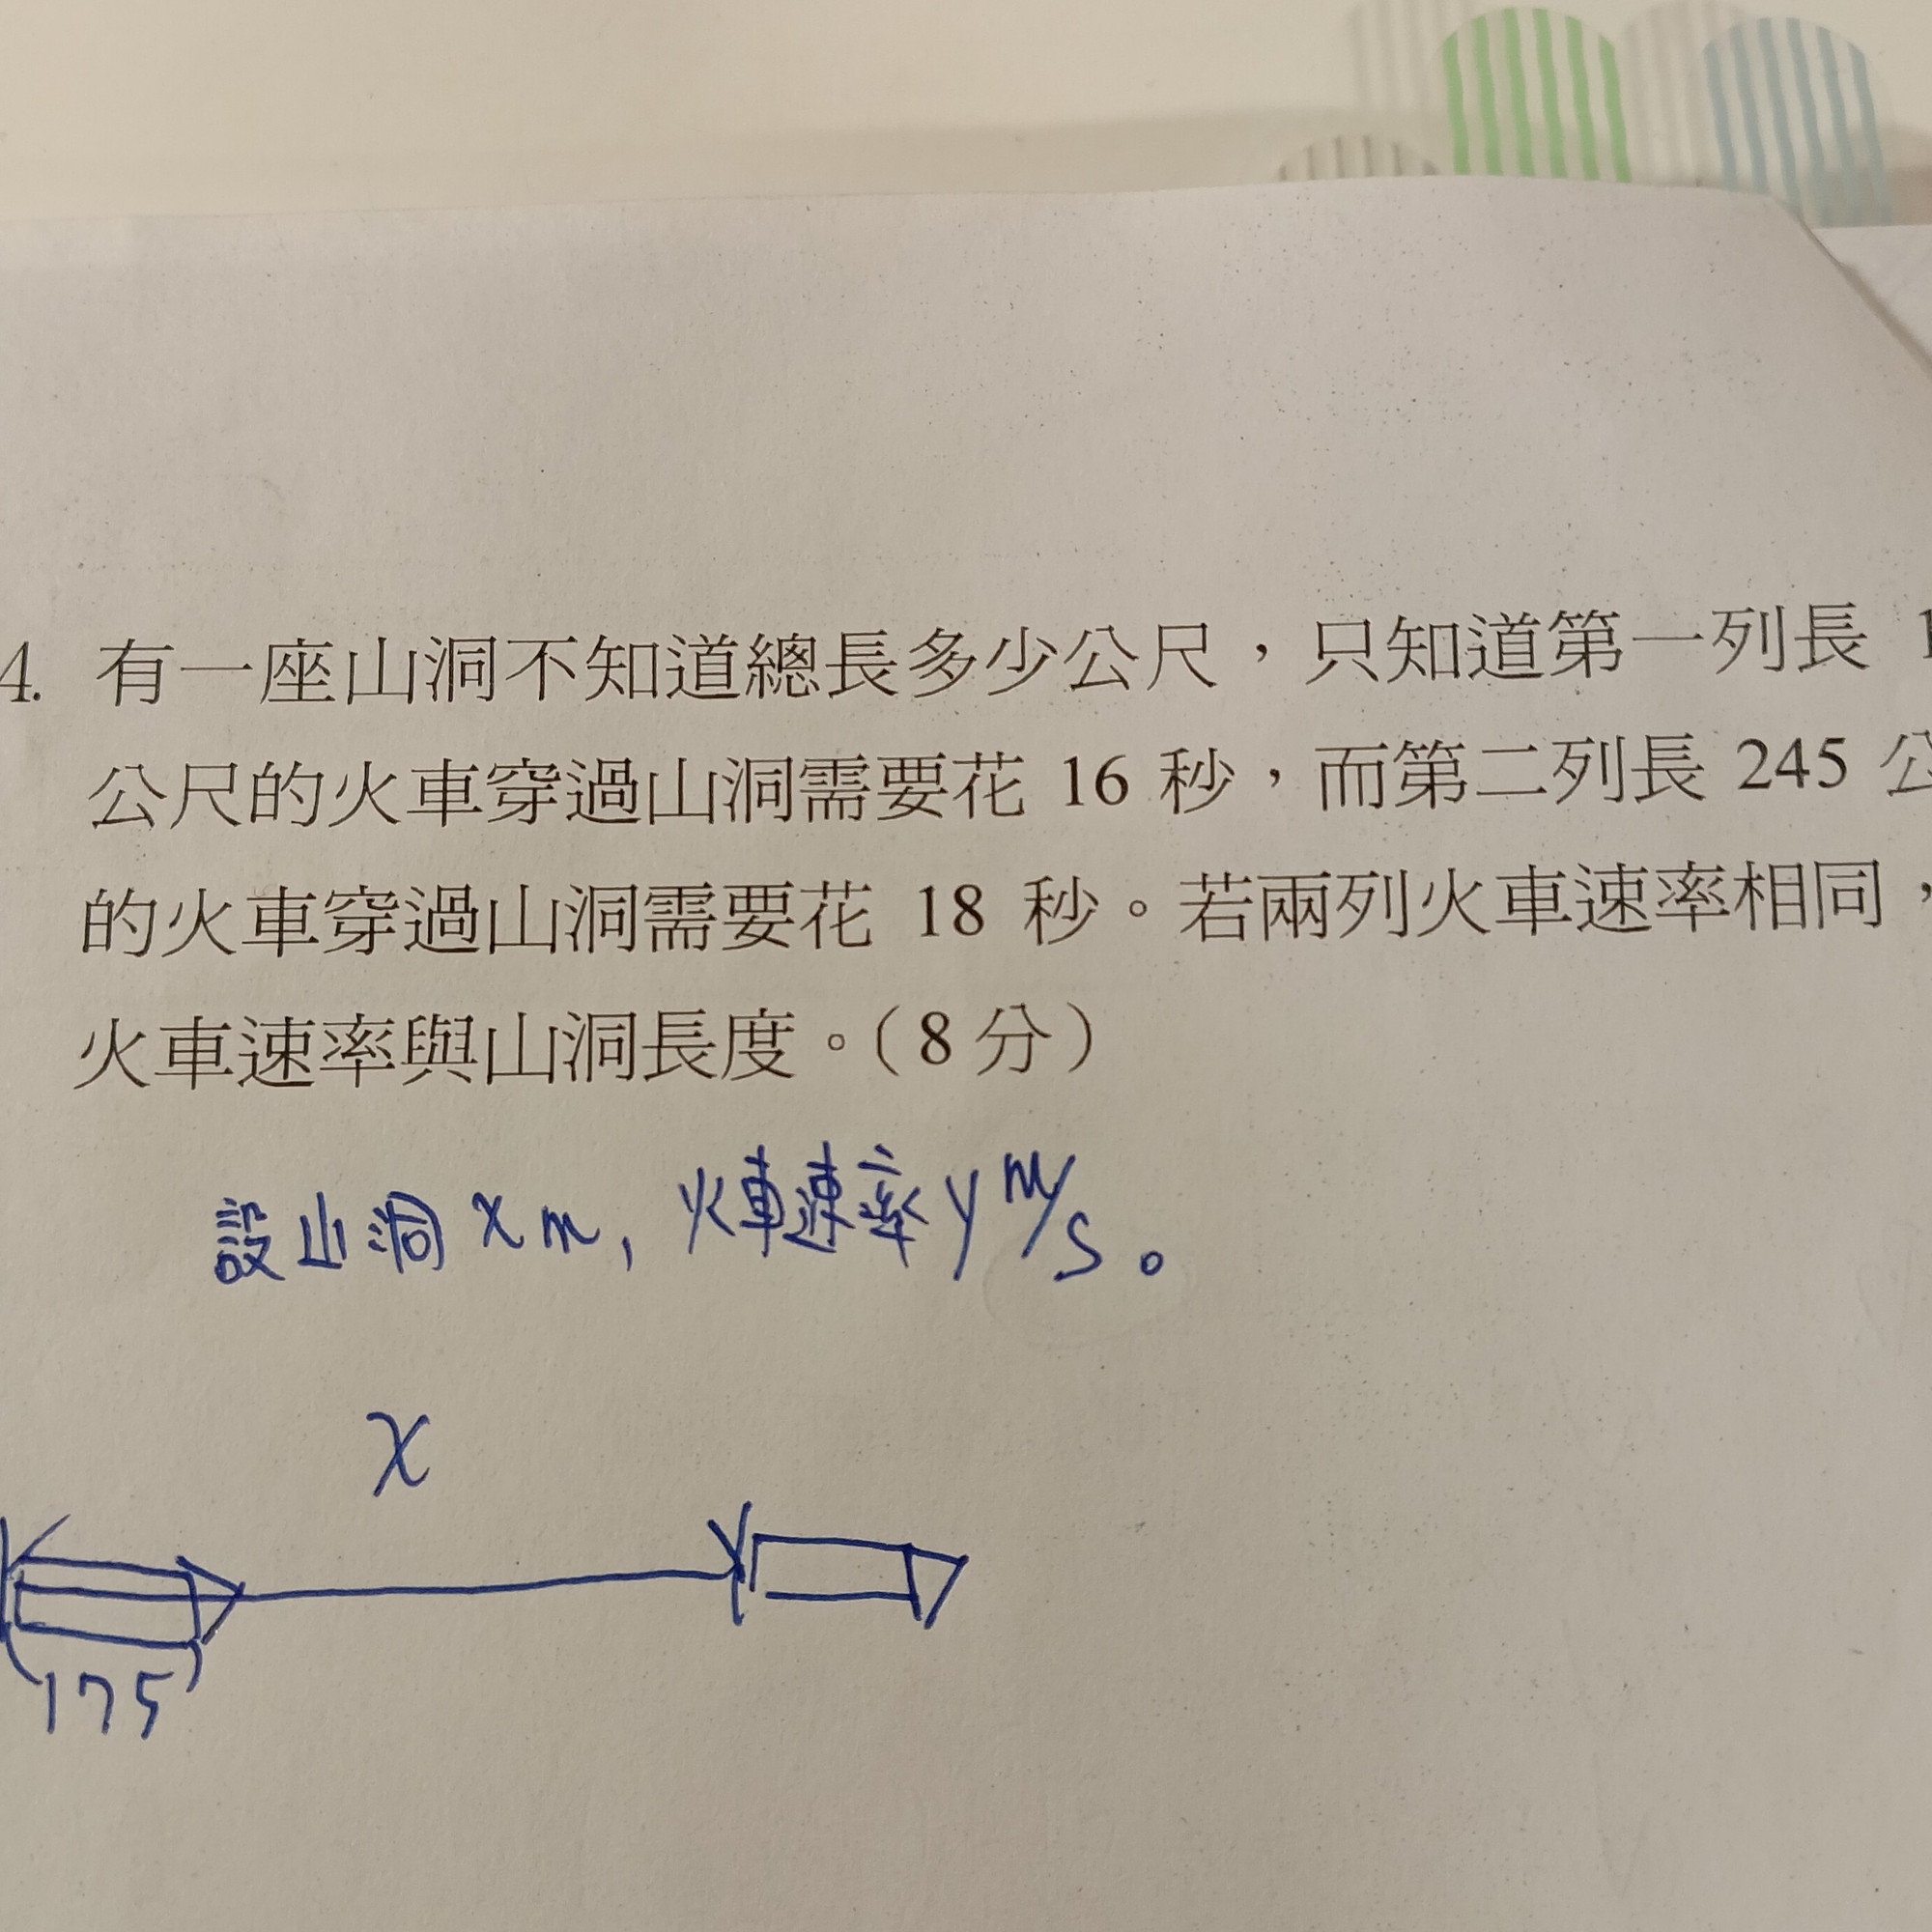 4. 有一座山洞不知道總長多少公尺，只知道第一列長 1
公尺的火車穿過山洞需要花 16 秒，而第二列長 245 公
的火車穿過山洞需要花 18 秒。若兩列火車速率相同，
火車速率與山洞長度。（8分）
設山洞 x m, 火車速率 y m/s。
x
175